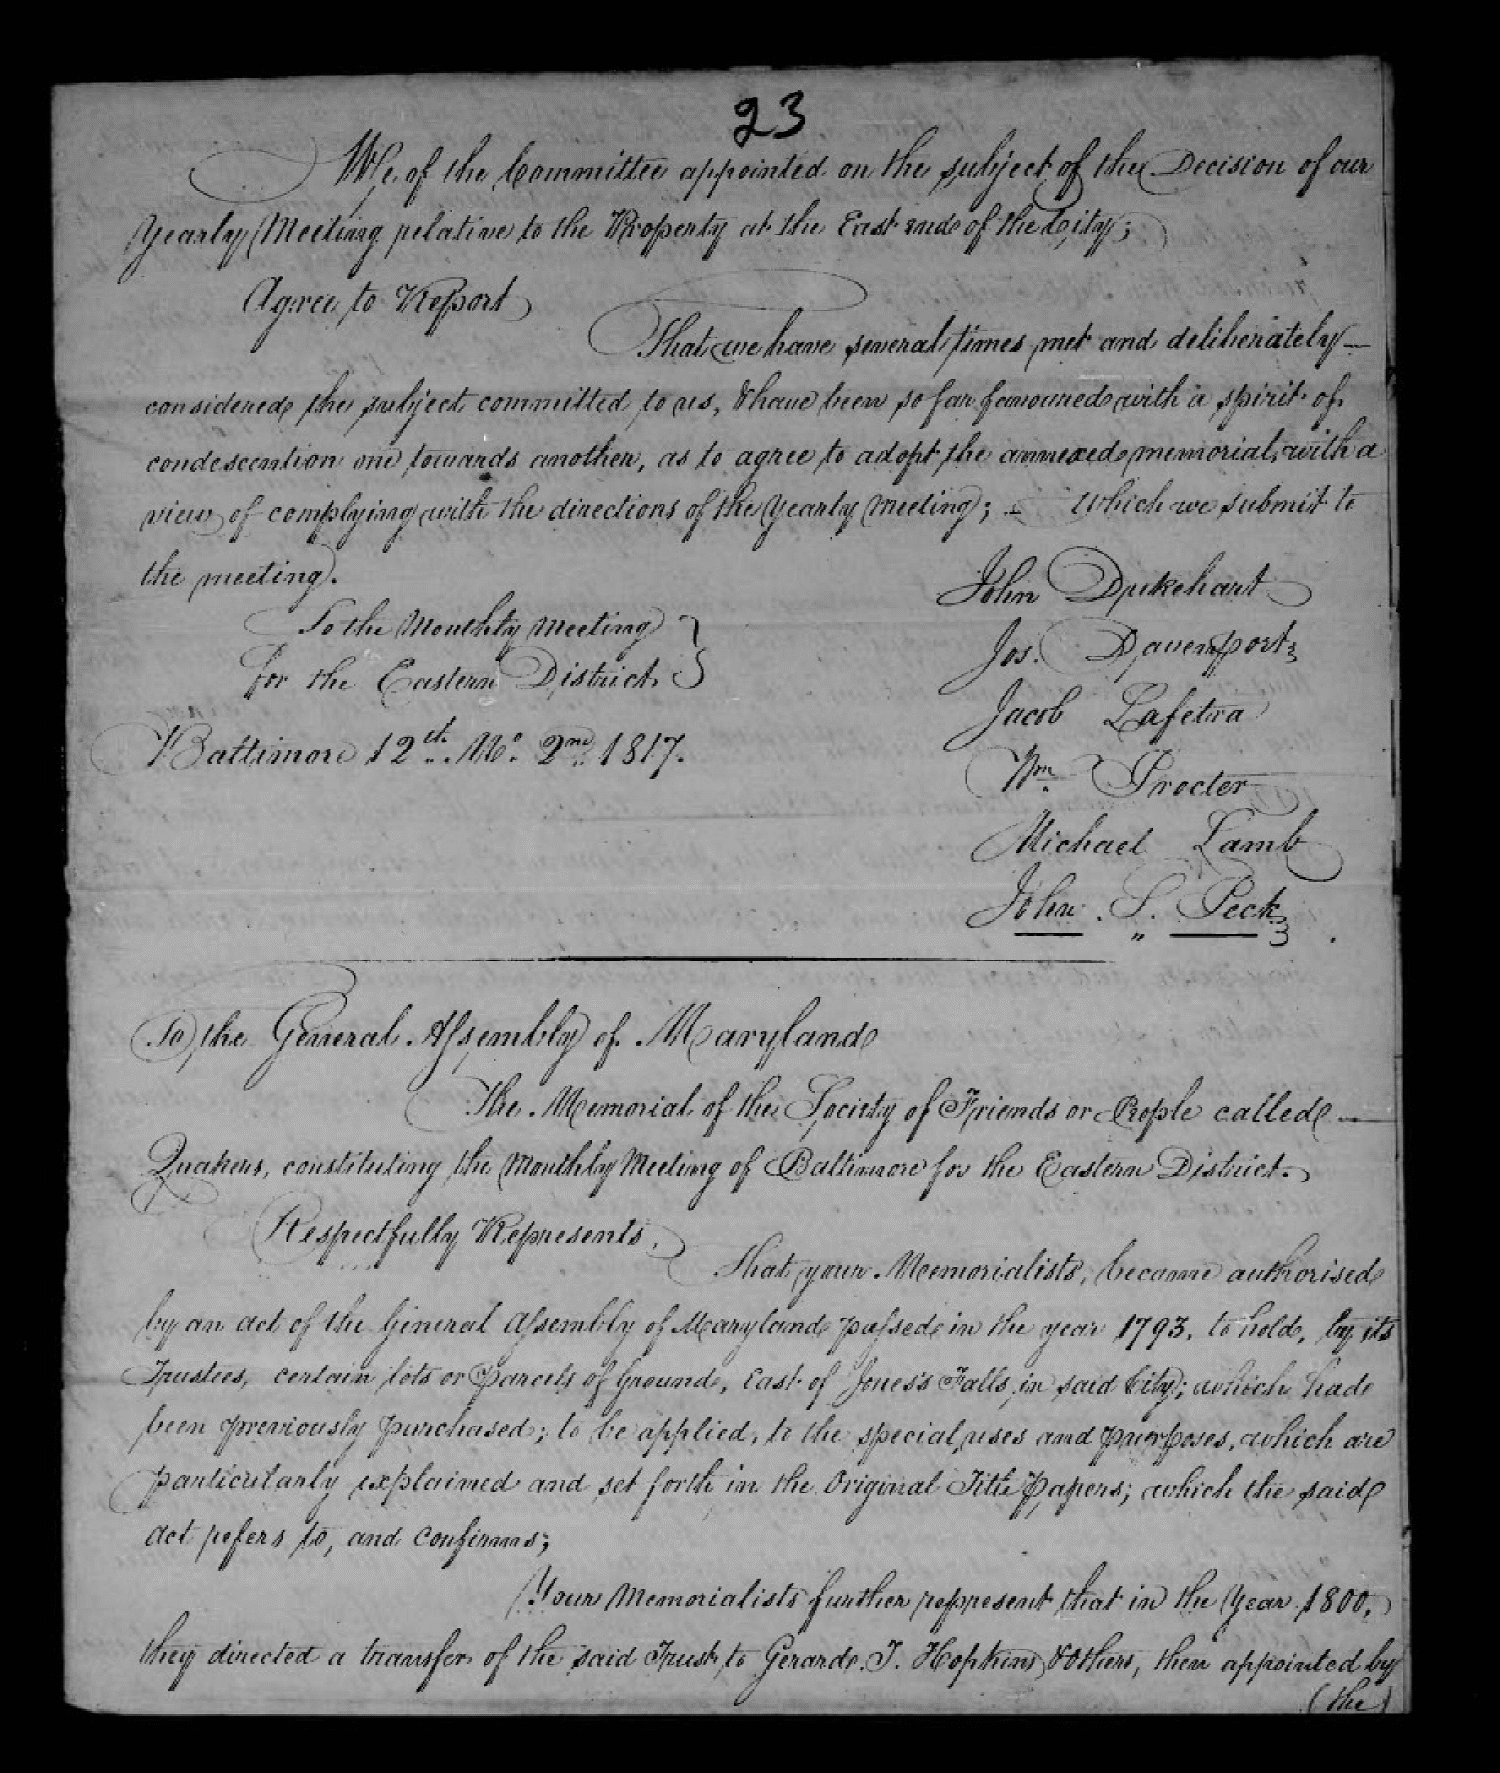 23
We, of the Committee appointed on the subject of the Decision of our
Yearly Meeting relative to the Property at the East end of the City;
Agree to Report
That we have several times met and deliberately —
considered the subject committed to us, & have been so far favoured with a spirit of
condescention one towards another, as to agree to adopt the annexed memorial, with a
view of complying with the directions of the Yearly Meeting; — which we submit to
the meeting.
John Dukehart
To the Monthly Meeting
Jos. Davenport
for the Eastern District.
Jacob Lafetra
Baltimore 12th. Mo. 2nd 1817.
Wm. Procter
Michael Lamb
John S. Peck
To the General Assembly of Maryland
The Memorial of the Society of Friends or People called —
Quakers, constituting the Monthly Meeting of Baltimore for the Eastern District.
Respectfully Represents.
That your Memorialists, became authorised
by an act of the General Assembly of Maryland passed in the year 1793, to hold, by its
Trustees, certain lots or parcels of Ground, East of Jones's Falls, in said City; which had
been previously purchased; to be applied, to the special uses and purposes, which are
particularly explained and set forth in the Original Title papers; which the said
act refers to, and confirms;
Your Memorialists further represent that in the Year 1800,
they directed a transfer of the said Trust, to Gerard T. Hopkins & others, then appointed by
(the)